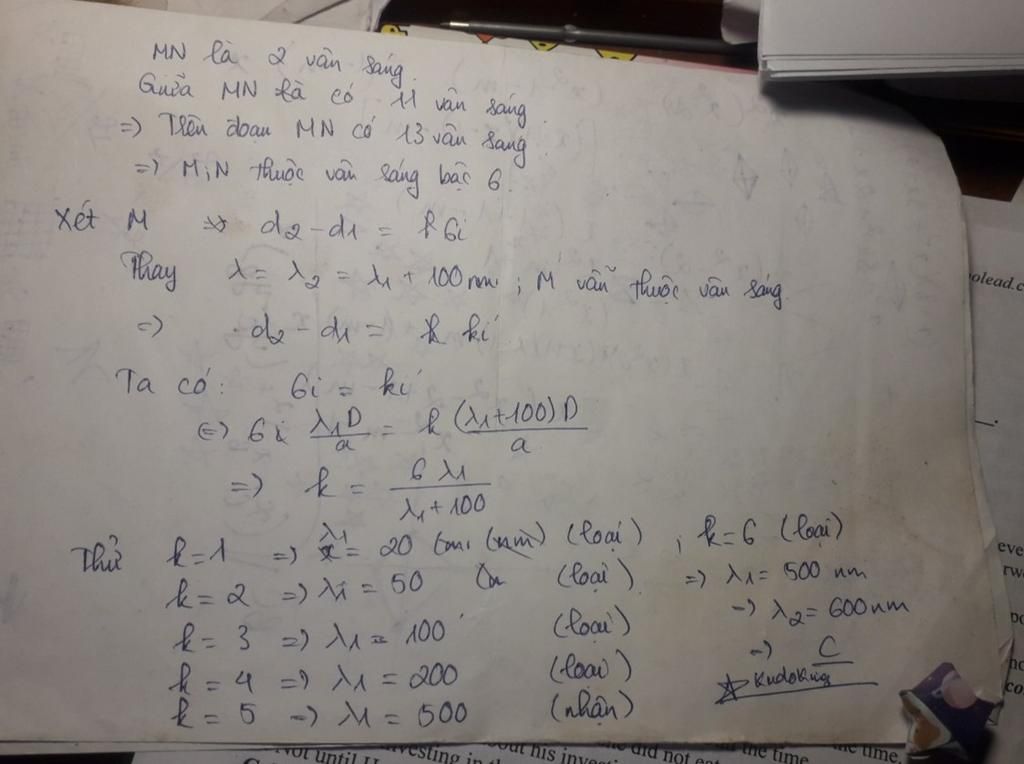 MN là 2 vân sáng.
Giữa MN là có 11 vân sáng.
=> Trên đoạn MN có 13 vân sáng
=> M;N thuộc vân sáng bậc 6.
Xét M => d2 - d1 = k 6i
Thay λ = λ2 = λ1 + 100 nm ; M vẫn thuộc vân sáng.
=> d2 - d1 = k ki'
Ta có: 6i = ki'
<=> 6 λ1D/a = k (λ1+100)D/a
=> k = 6λ1/(λ1+100)
Thử k=1 => λ1 = 20 (nm) (loại) ; k=6 (loại)
k=2 => λ1 = 50 (loại) => λ1 = 500 nm
=> λ2 = 600nm
k=3 => λ1 = 100 (loại)
=> C
k=4 => λ1 = 200 (loại)
KudoKing
k=5 => λ1 = 500 (nhận)
olead.c
eve
rwa
co
Not until
vesting in the
out his invest
did not
the time
the time.